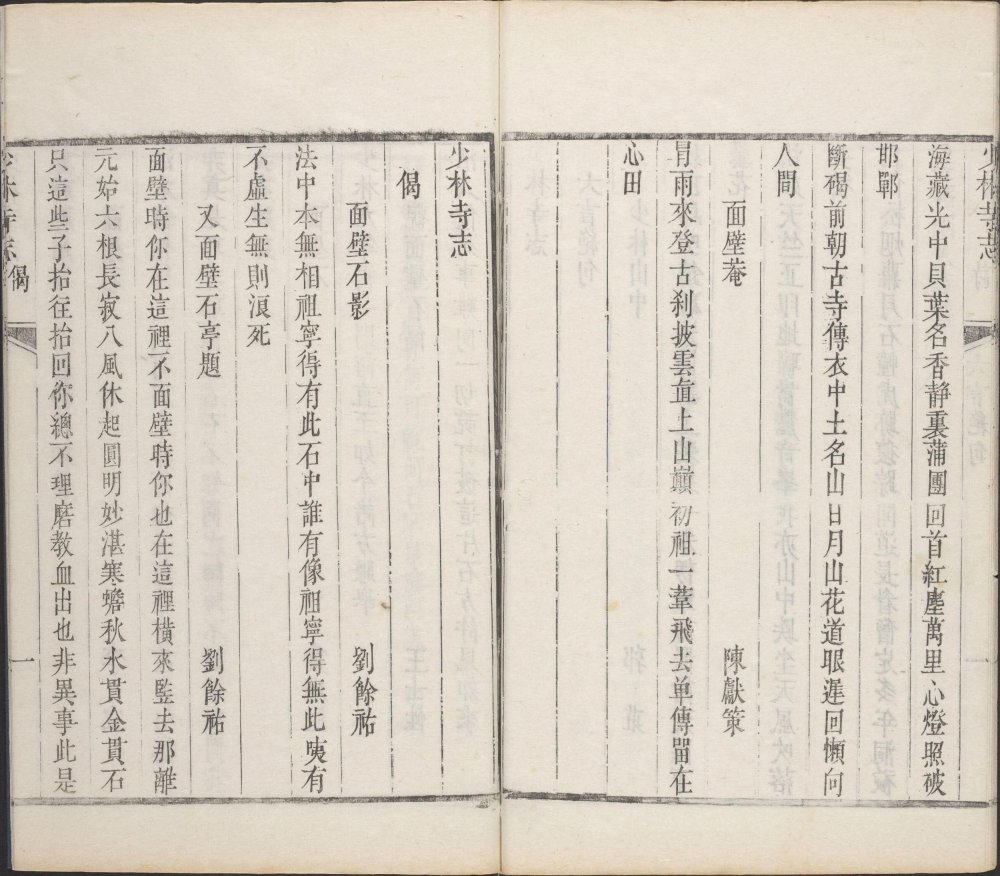 少林寺志
海藏光中貝葉名香静裏蒲團回首紅塵萬里心燈照破
邯鄲
斷碣前朝古寺傳衣中土名山日月山花道眼遲回懶向
人間
面壁菴 陳獻策
冐雨來登古刹披雲直上山巔初祖一葦飛去单傳畱在
心田
少林寺志
偈
面壁石影 劉餘祐
法中本無相祖寧得有此石中誰有像祖寧得無此咦有
不虛生無則浪死
又面壁石亭題 劉餘祐
面壁時你在這裡不面壁時你也在這裡橫來竪去那離
元始六根長寂八風休起圓明妙湛寒蟾秋水貫金貫石
只這些子抬徃抬回你總不理磨教血出也非異事此是
少林寺志 偈 一